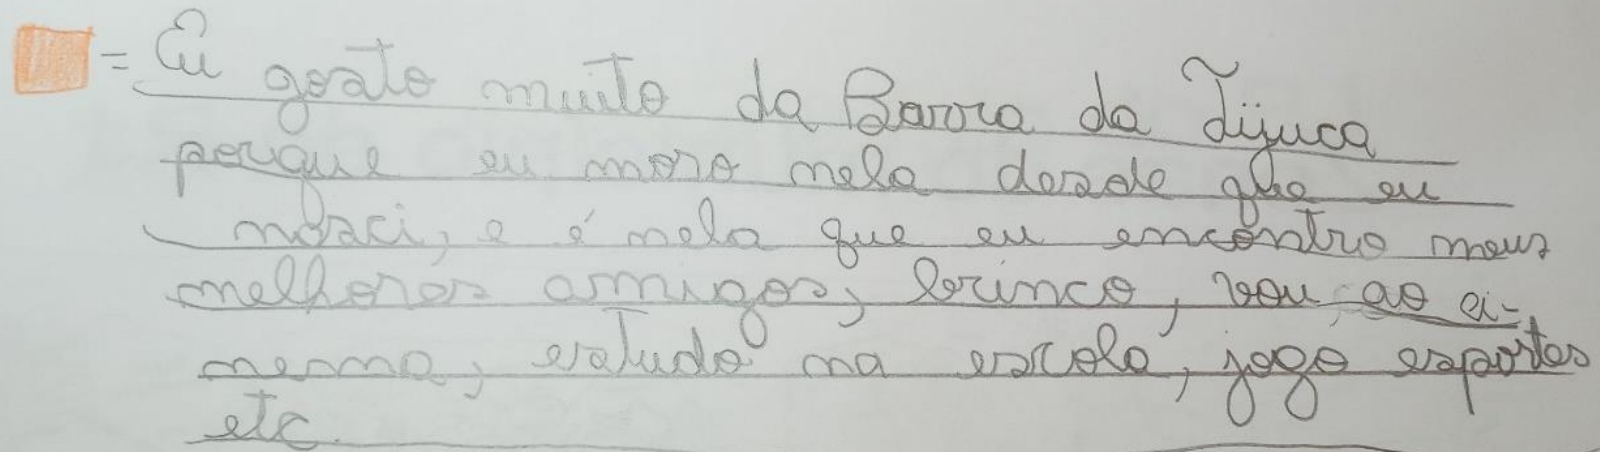 = Eu gosto muito da Barra da Tijuca
porque eu moro nela desde que eu
nasci, e é nela que eu encontro meus
melhores amigos, brinco, vou ao ci-
nema, estudo na escola, jogo esportes
etc.